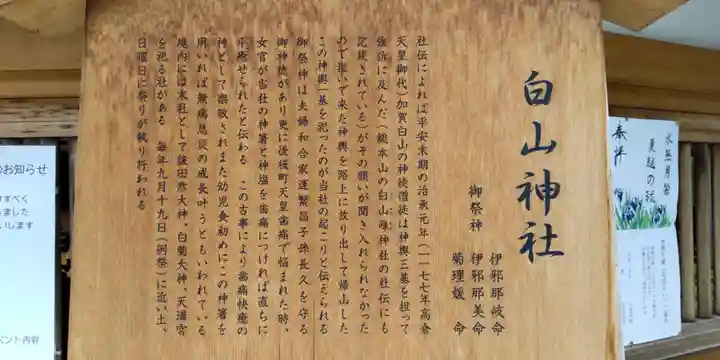 白山神社
御祭神
伊邪那岐命
伊邪那美命
菊理媛命
社伝によれば平安末期の治承元年(一一七七年高倉
天皇御代)加賀白山の神徒僧徒は神輿三基を担って
強訴に及んだ(総本山の白山
社の社伝にも
記録されている)がその願いが聞き入れられなかった
ので担いで来た神輿を路上に放り出して帰山した
この神輿一基を祀ったのが当社の起こりと伝えられる
御祭神は夫婦和合家運繁昌子孫長久を守る
御神徳があり更に後後町天皇歯痛で悩まれた時、
女官が当社の神箸と神塩を歯痛につければ直ちに
平癒せられたと伝わる この古事により歯痛快癒の
神として崇敬されまた幼児食初めにこの神箸を
用いれば無病息災の成長叶うともいわれている
境内には末社として猿田彦大神。白菊大神。天満宮
を祀る社がある 毎年九月十九日(例祭)に近い土、
日曜日に祭りが執り行われる
水無月祭
夏越の祓
奉拝
のお知らせ
すべく
しました
いします
ベント内容